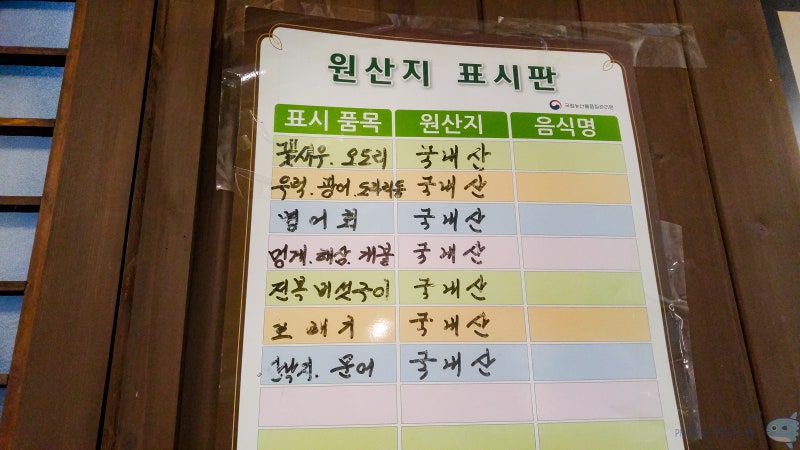 원산지 표시판
국립농산물품질관리원
표시 품목 원산지 음식명
꽃새우. 오도리 국내산
우럭. 광어. 도다리등 국내산
병어회 국내산
멍게. 해삼. 개불 국내산
전복 버섯구이 국내산
국내산
문어 국내산